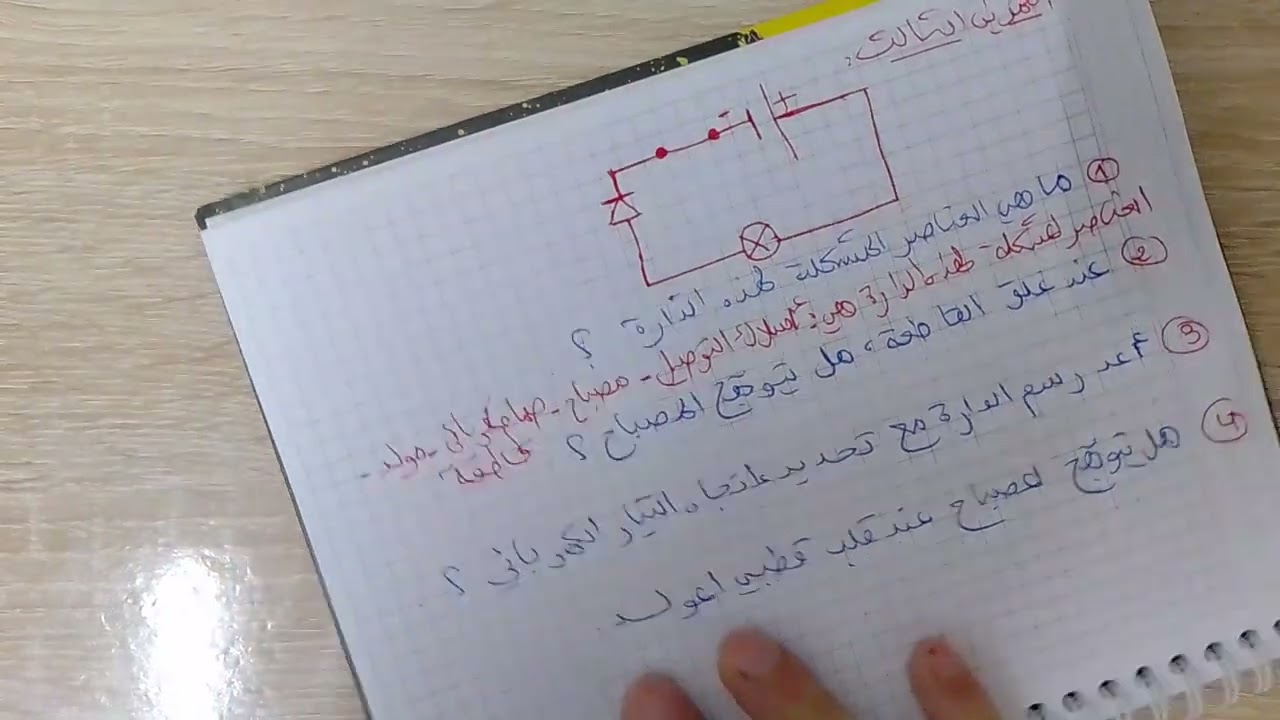 التمرين الثالث:
- +
① ما هي العناصر المشكلة لهذه الدارة ؟
العناصر المشكلة لهذه الدارة هي: أسلاك التوصيل - مصباح - صمام كهربائي - مولد -
قاطعة
② عند غلق القاطعة، هل يتوهج المصباح ؟
③ أعد رسم الدارة مع تحديد اتجاه التيار الكهربائي ؟
④ هل يتوهج المصباح عند قلب قطبي المولد